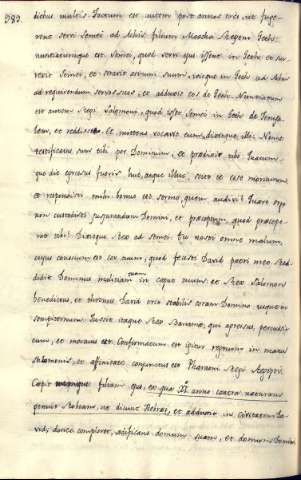 982.
diebus multis. Factum est autem post annos tres ut fuge-
rent servi Semei ad Achis filium Maacha Regem Geth:
nunciatumque est Semei, quod servi ejus essent in Geth: et sur-
rexit Semei, et stravit asinum suum, ivitque in Geth ad Achis
ad requirendum servos suos, et adduxit eos de Geth. Nunciatum
est autem Regi Salomoni, quod isset Semei in Geth de Jerusa-
lem, et rediisset. et mittens vocavit eum, dixitque illi: Nonne
testificatus sum tibi per Dominum, et prædixi tibi: quacum-
que die egressus fueris huc, atque illuc, scito te esse moriturum
et respondisti mihi: bonus est sermo, quem audivi? Quare ergo
non custodisti jusjurandum Domini, et præceptum, quod præcepe-
ram tibi? Dixitque Rex ad Semei: tu nosti omne malum,
cujus conscium est cor tuum, quod fecisti David patri meo: Red-
didit Dominus malitiam tuam in caput tuum. et Rex Salomon
benedictus, et thronus David erit stabilis coram Domino usque in
sempiternum. Jussit itaque Rex Banaiæ, qui egressus, percussit
eum, et mortuus est. Confirmatum est igitur regnum in manu
Salomonis, et affinitate conjunctus est Pharaoni Regi Ægypti.
Cepit filiam ejus, ex qua anno contra naturam
genuit Roboam, ut dicunt Hebræi, et adduxit in civitatem Da-
vid, donec compleret ædificans domum suam, et domum Domini